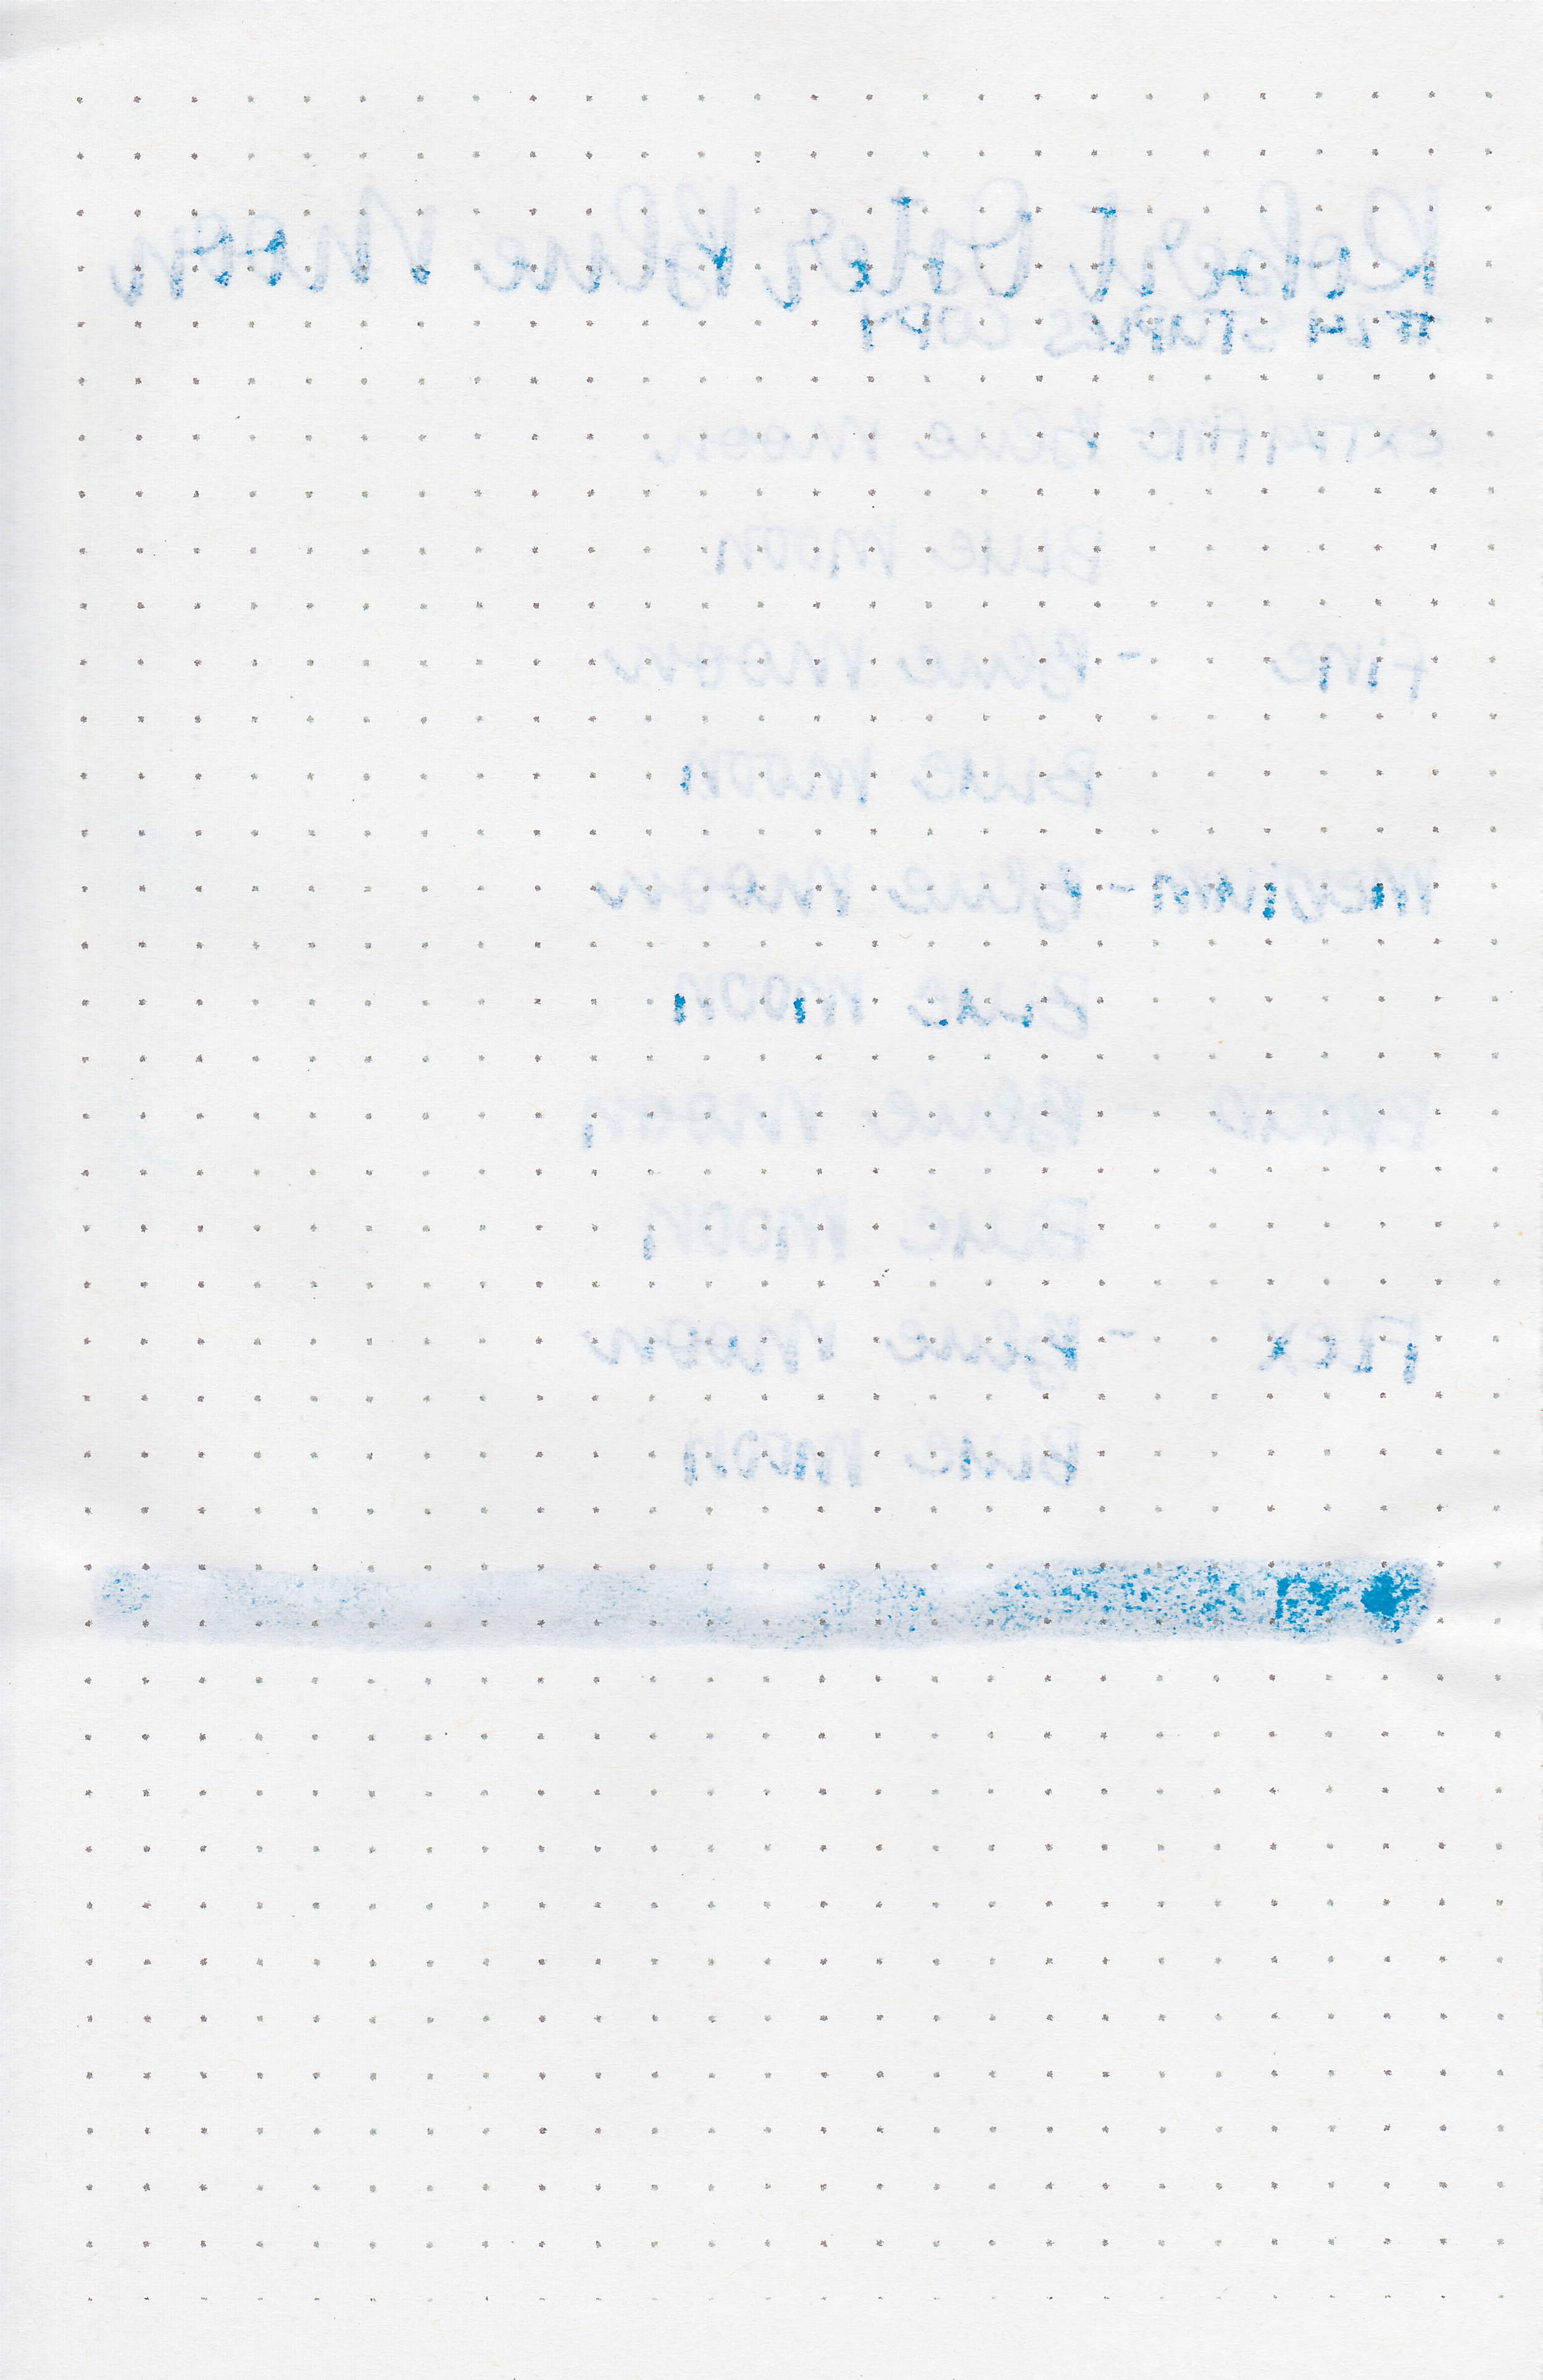 Robert Oster Blue Moon
#24 STAPLES COPY
extra fine Blue moon
Blue moon
fine - Blue moon
Blue moon
Medium - Blue moon
Blue moon
Broad - Blue moon
Blue moon
Flex - Blue moon
Blue moon